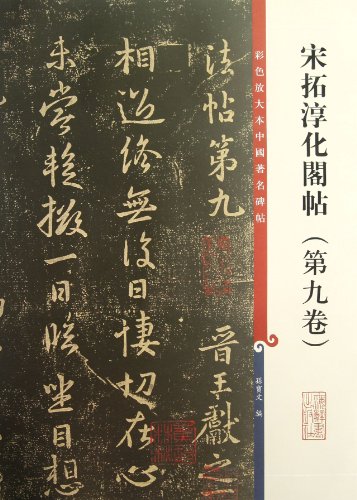 宋拓淳化閣帖(第九卷)
彩色放大本中國著名碑帖
孫寶文 編
法帖第九 晉王獻之
相過終無復日悽切在心
未嘗輟一日臨坐目想